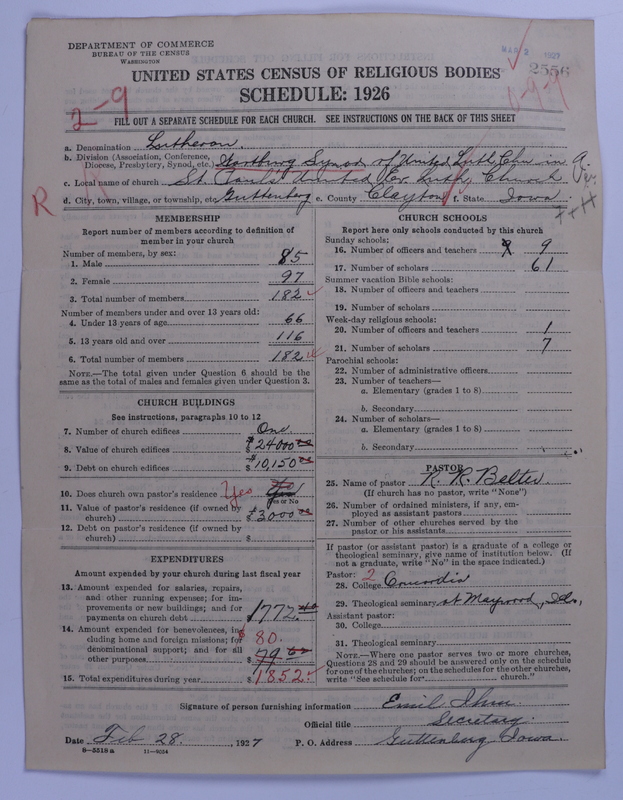 DEPARTMENT OF COMMERCE
BUREAU OF THE CENSUS
WASHINGTON
MAR 2 1927
2556
UNITED STATES CENSUS OF RELIGIOUS BODIES
SCHEDULE: 1926
2-9
FILL OUT A SEPARATE SCHEDULE FOR EACH CHURCH. SEE INSTRUCTIONS ON THE BACK OF THIS SHEET
a. Denomination Lutheran.
b. Division (Association, Conference, Diocese, Presbytery, Synod, etc.) Wartburg Synod of United Luth. Chu in A.
c. Local name of church St. Paul's United Ev. Luth. Church
R
d. City, town, village, or township, etc Guttenberg e. County Clayton f. State Iowa
MEMBERSHIP
Report number of members according to definition of
member in your church
Number of members, by sex:
1. Male 85
2. Female 97
3. Total number of members 182
Number of members under and over 13 years old:
4. Under 13 years of age 66
5. 13 years old and over 116
6. Total number of members 182
NOTE.—The total given under Question 6 should be the
same as the total of males and females given under Question 3.
CHURCH BUILDINGS
See instructions, paragraphs 10 to 12
7. Number of church edifices One.
8. Value of church edifices $24000
9. Debt on church edifices $10,150
10. Does church own pastor's residence Yes
Yes or No
11. Value of pastor's residence (if owned by
church) $3000
12. Debt on pastor's residence (if owned by
church) $
EXPENDITURES
Amount expended by your church during last fiscal year
13. Amount expended for salaries, repairs,
and other running expenses; for im-
provements or new buildings; and for
payments on church debt 1772.40
14. Amount expended for benevolences, in-
cluding home and foreign missions; for
denominational support; and for all
other purposes $80. 79
15. Total expenditures during year $1852.
CHURCH SCHOOLS
Report here only schools conducted by this church
Sunday schools:
16. Number of officers and teachers 9
17. Number of scholars 61
Summer vacation Bible schools:
18. Number of officers and teachers
19. Number of scholars
Week-day religious schools:
20. Number of officers and teachers 1
21. Number of scholars 7
Parochial schools:
22. Number of administrative officers
23. Number of teachers—
a. Elementary (grades 1 to 8)
b. Secondary
24. Number of scholars—
a. Elementary (grades 1 to 8)
b. Secondary
PASTOR
25. Name of pastor R. R. Belter
(If church has no pastor, write "None")
26. Number of ordained ministers, if any, em-
ployed as assistant pastors
27. Number of other churches served by the
pastor or his assistants
If pastor (or assistant pastor) is a graduate of a college or
theological seminary, give name of institution below. (If
not a graduate, write "No" in the space indicated.)
Pastor: 2
28. College Concordia
29. Theological seminary at Maywood, Ills,
Assistant pastor:
30. College
31. Theological seminary
NOTE.—Where one pastor serves two or more churches,
Questions 28 and 29 should be answered only on the schedule
for one of the churches; on the schedules for the other churches,
write "See schedule for church."
Signature of person furnishing information Emil Ihm
Official title Secretary.
Date Feb 28. , 1927 P. O. Address Guttenberg Iowa.
8—5518a 11—9024